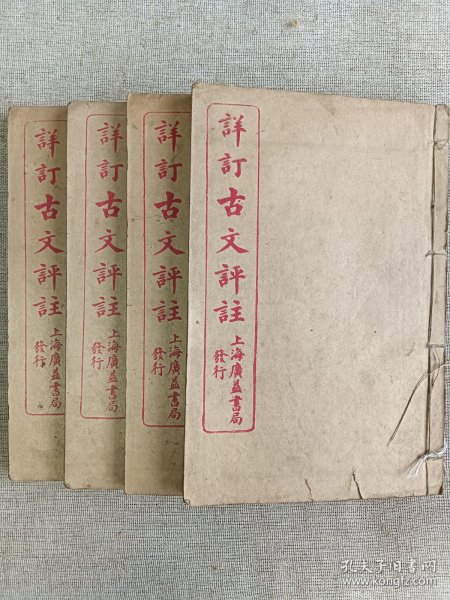 詳訂古文評註
上海廣益書局
發行
詳訂古文評註
上海廣益書局
發行
詳訂古文評註
上海廣益書局
發行
詳訂古文評註
上海廣益書局
發行
孔夫子旧书网
www.kongfz.com